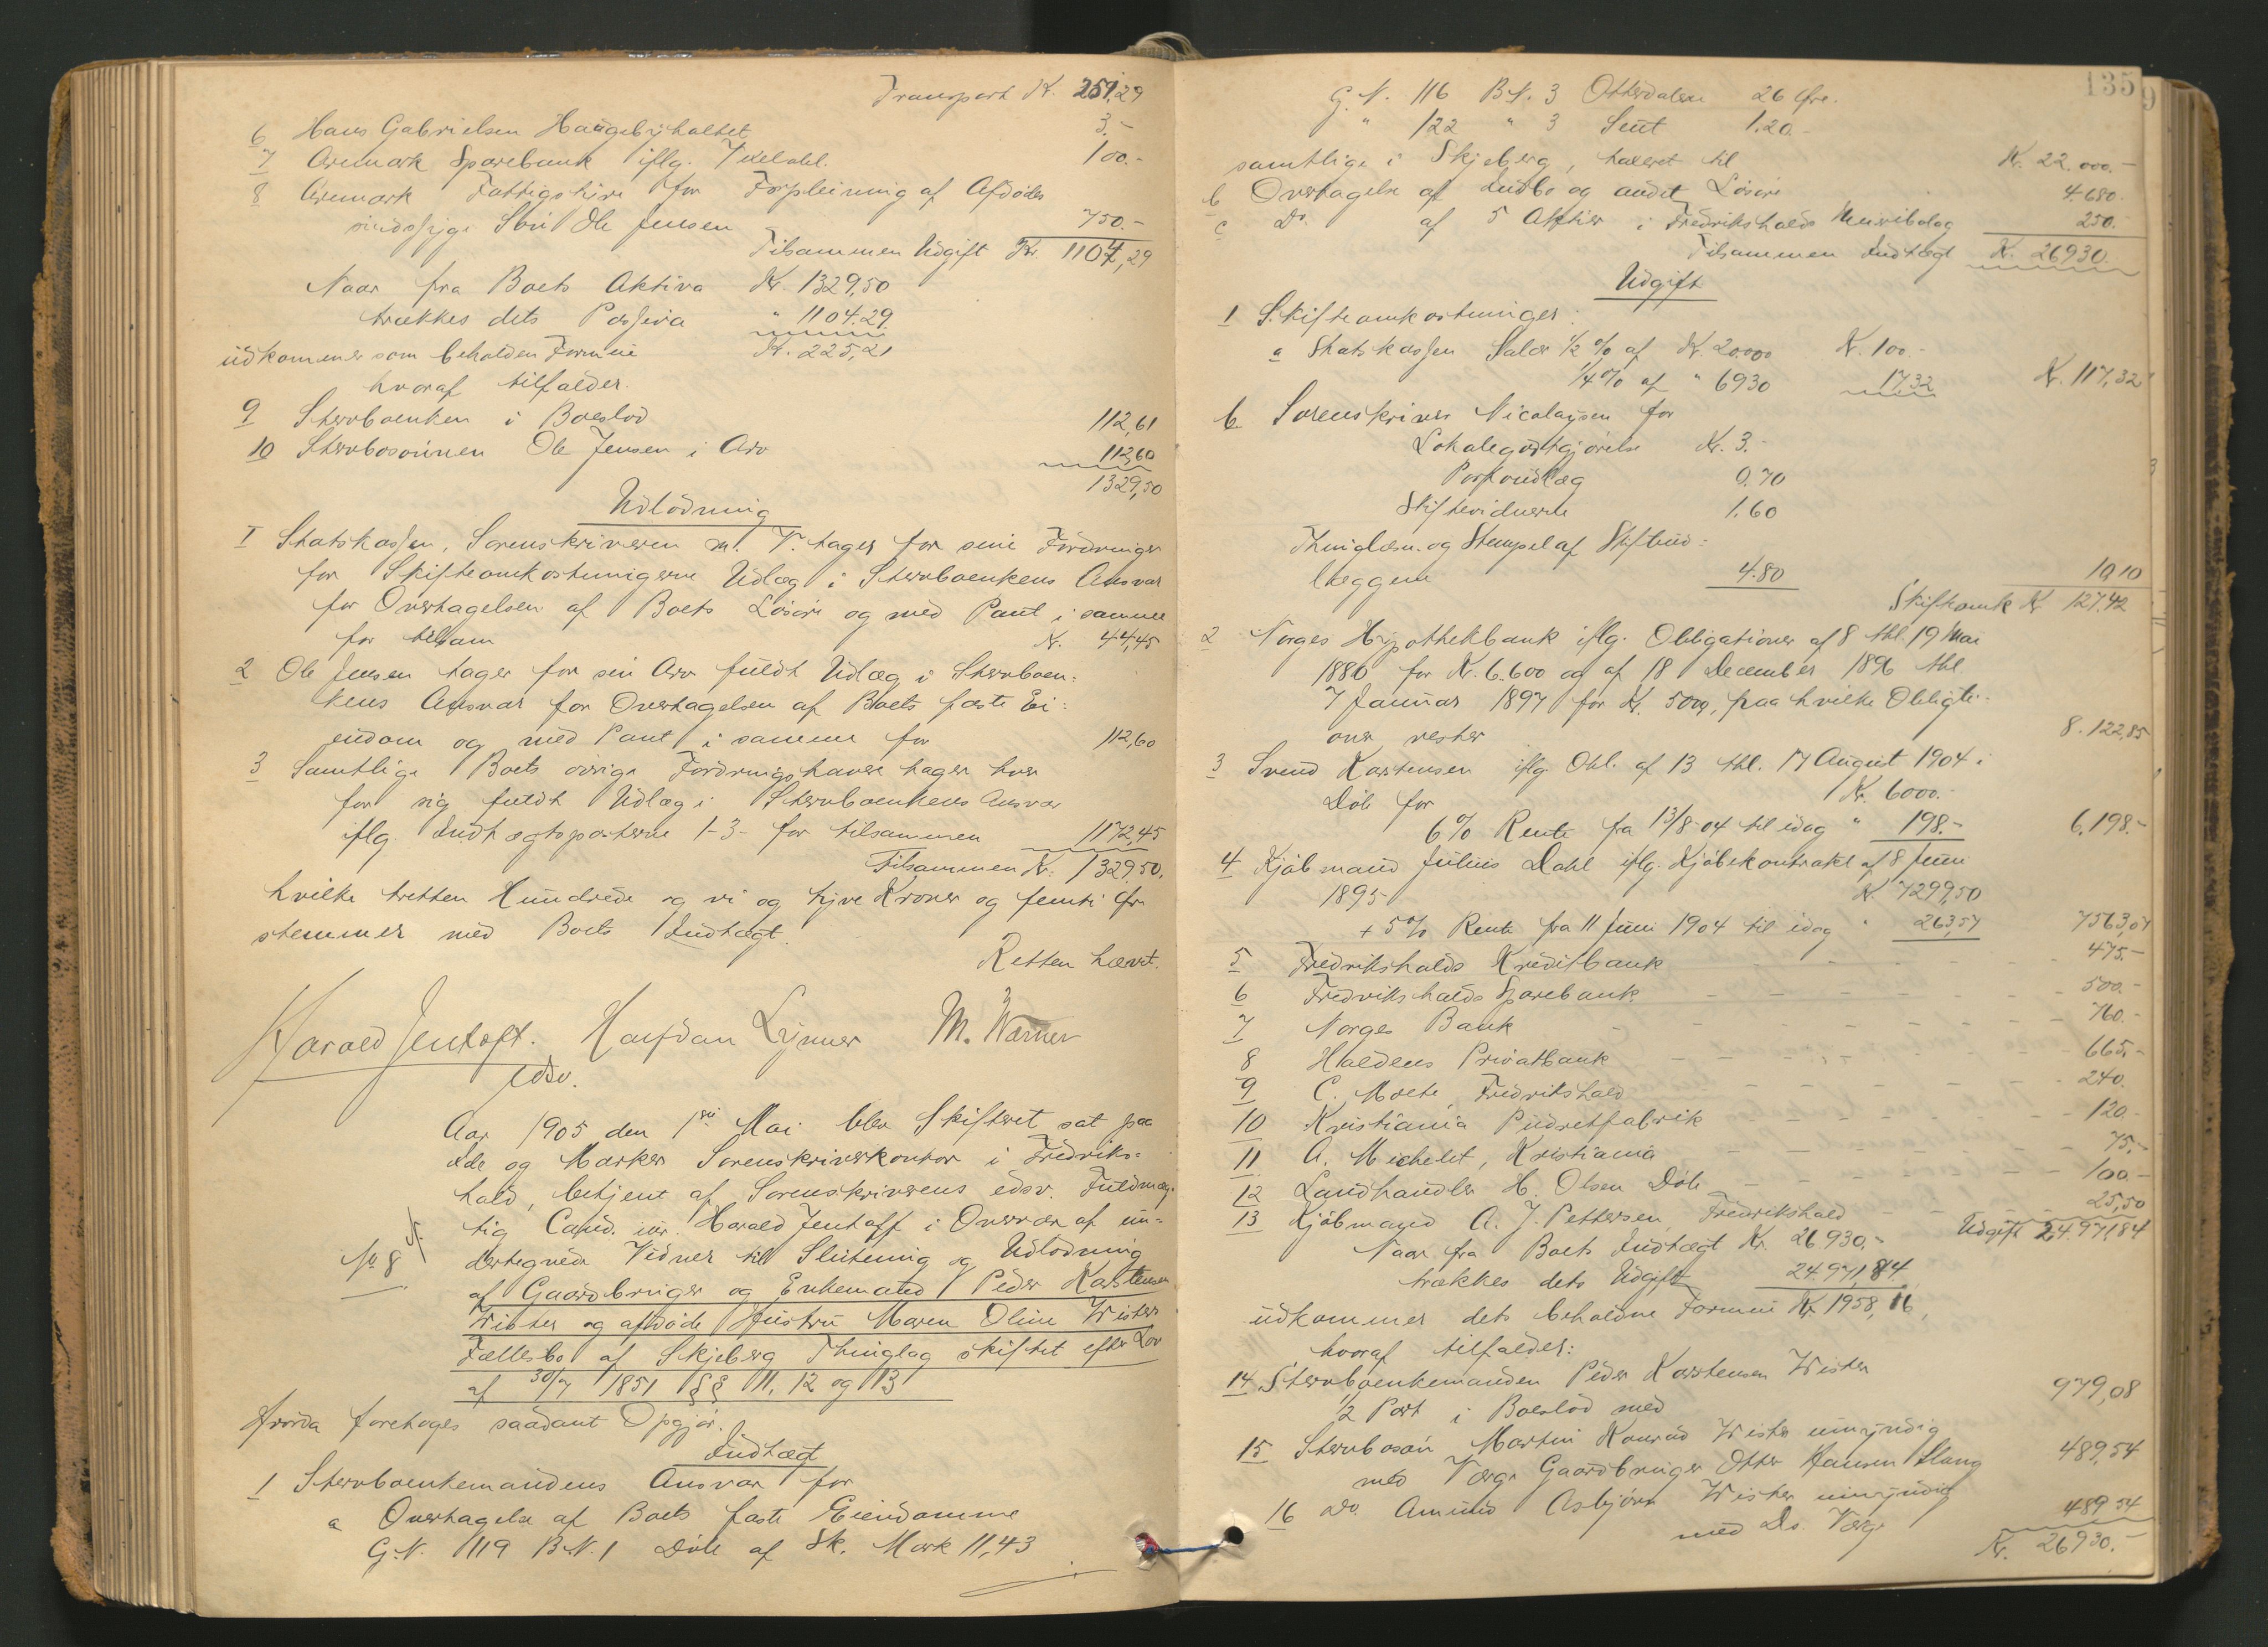 Transport Kr. 251,29
6 Hans Gabrielsen Haugebyhaltet 3.-
7 Aremark Sparebank iflg. Vexelobl. 100.-
8 Aremark Fattigstyre for Forpleining af Afdødes
sindssyge Søn Ole Jensen 750.-
Tilsammen Udgift Kr. 1104,29
Naar fra Boets Aktiva Kr. 1329,50
trækkes dets Passiva " 1104.29.
udkommer som beholden Formue Kr. 225,21
hvoraf tilfalder.
9 Stervboenken i Boeslod 112,61
10 Stervbosønnen Ole Jensen i Arv 112,60
1329,50
Udlodning
I Statskassen, Sorenskriveren m. V. tager for sine Fordringer
for Skifteomkostningerne Udlæg i Stervboenkens Ansvar
for Overtagelsen af Boets Løsøre og med Pant i samme
for tilsam Kr. 44,45
2 Ole Jensen tager for sin Arv fuldt Udlæg i Stervboen=
kens Ansvar for Overtagelsen af Boets faste Ei=
endom og med Pant i samme for 112,60
3 Samtlige Boets øvrige Fordringshavere tager hver
for sig fuldt Udlæg i Stervboenkens Ansvar
iflg. Indtægtsposterne 1-3- for tilsammen 1172,45
Tilsammen Kr. 1329,50.
hvilke tretten Hundrede og ni og tyve Kroner og femti Øre
stemmer med Boets Indtægt.
Retten hævet.
Harald Jentoft. Halfdan Lynner M. Warner
edsv.
Aar 1905 den 1ste Mai blev Skifteret sat paa
Idd og Marker Sorenskriverkontor i Fredriks=
hald, betjent af Sorenskriverens edsv. Fuldmæg-
tig Cand. jur. Harald Jentoft i Overvær af un=
dertegnede Vidner til Slutning og Udlodning
No 8
af Gaardbruger og Enkemand Peder Karstensen
Wister og afdøde Hustru Maren Oline Wisters
Fællesbo af Skjeberg Thinglag skiftet efter Lov
af 30/7 1851 §§ 11, 12 og 13
Hvorda foretoges saadant Opgjør.
Indtægt
1 Stervboenkemandens Ansvar for
a Overtagelse af Boets faste Eiendomme
G.N. 119 B.N. 1 Døle af Sk. Mark 11,43
135
G.N. 116 B.N. 3 Otterdalen 26 Øre.
" 122 " 3 Sent 1.20.-
samtlige i Skjeberg, taxeret til Kr. 22.000.-
b Overtagelse af Indbo og andet Løsøre 4.680.
c Do. af 5 Aktier i Fredrikshalds Meieribolag 250.
Tilsammen Indtægt Kr. 26930.
Udgift
1 Skifteomkostninger:
a Statskassen Salær ½ % af Kr. 20.000 Kr. 100.-
¼ % af " 6930 17,32 Kr. 117,32
b Sorenskriver Nicolaysen for
Lokalegodtgjørelse Kr. 3.-
Portoudlæg 0.70
Skiftevidnerne 1.60
Thinglæsn. og Stempel af Skifteud=
læggene 4.80 10,10
Skifteomk Kr 127,42
2 Norges Hypothekbank iflg. Obligationer af 8 thl. 19 Mai
1880 for Kr. 6.600 og af 18 December 1896 thl.
7 Januar 1897 for Kr. 5000, paa hvilke Obligti-
oner rester 8.122,85
3 Svend Karstensen iflg. Obl. af 13 thl. 17 August 1904 i
Døle for Kr. 6000.-
6% Rente fra 13/8-04 til idag " 198.- 6.198.-
4 Kjøbmand Julius Dahl iflg. Kjøbekontrakt af 8 Juni
1895 Kr. 7299,50
+ 5% Rente fra 11 Juni 1904 til idag " 263,57 7563,07
5 Fredrikshalds Kreditbank 475.-
6 Fredrikshalds Sparebank 500.-
7 Norges Bank 760.-
8 Haldens Privatbank 665.-
9 C. Molte, Fredrikshald 240.
10 Kristiania Pudretfabrik 120.-
11 A. Michelet, Kristiania 75.-
12 Landhandler H. Olsen Døle 100.-
13 Kjøbmand A. J. Pettersen, Fredrikshald 25,50
Naar fra Boets Indtægt Kr. 26930.- Udgift 24.971,84
trækkes dets Udgift 24.971,84
udkommer dets beholdne Formue Kr. 1958,16,
hvoraf tilfalder:
14 Stervboenkemanden Peder Karstensen Wister
½ Part i Boeslod med 979,08
15 Stervbosøn Martin Konrad Wister umyndig
med Værge Gaardbruger Otter Hansen Slang 489,54
16 Do. Amund Asbjørn Wister umyndig
med Do. Værge 489,54
Kr. 26930.-